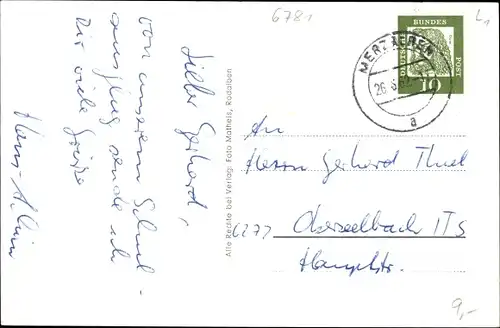 6781
L1
DEUTSCHE BUNDES POST
10
MERZALBEN
26.6.62
a
Lieber Gerhard,
von unserem Schul-
ausflug sende ich
Dir viele Grüße
Hans-Albin
Alle Rechte bei Verlag: Foto Matheis, Rodalben
An
Herrn Gerhard Thuel
6277 Oberselbach ITS
Hauptstr.
9,-